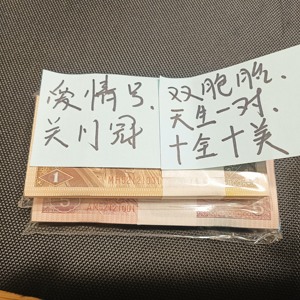 爱情号、
关门冠
双胞胎、
天生一对、
十全十美
1